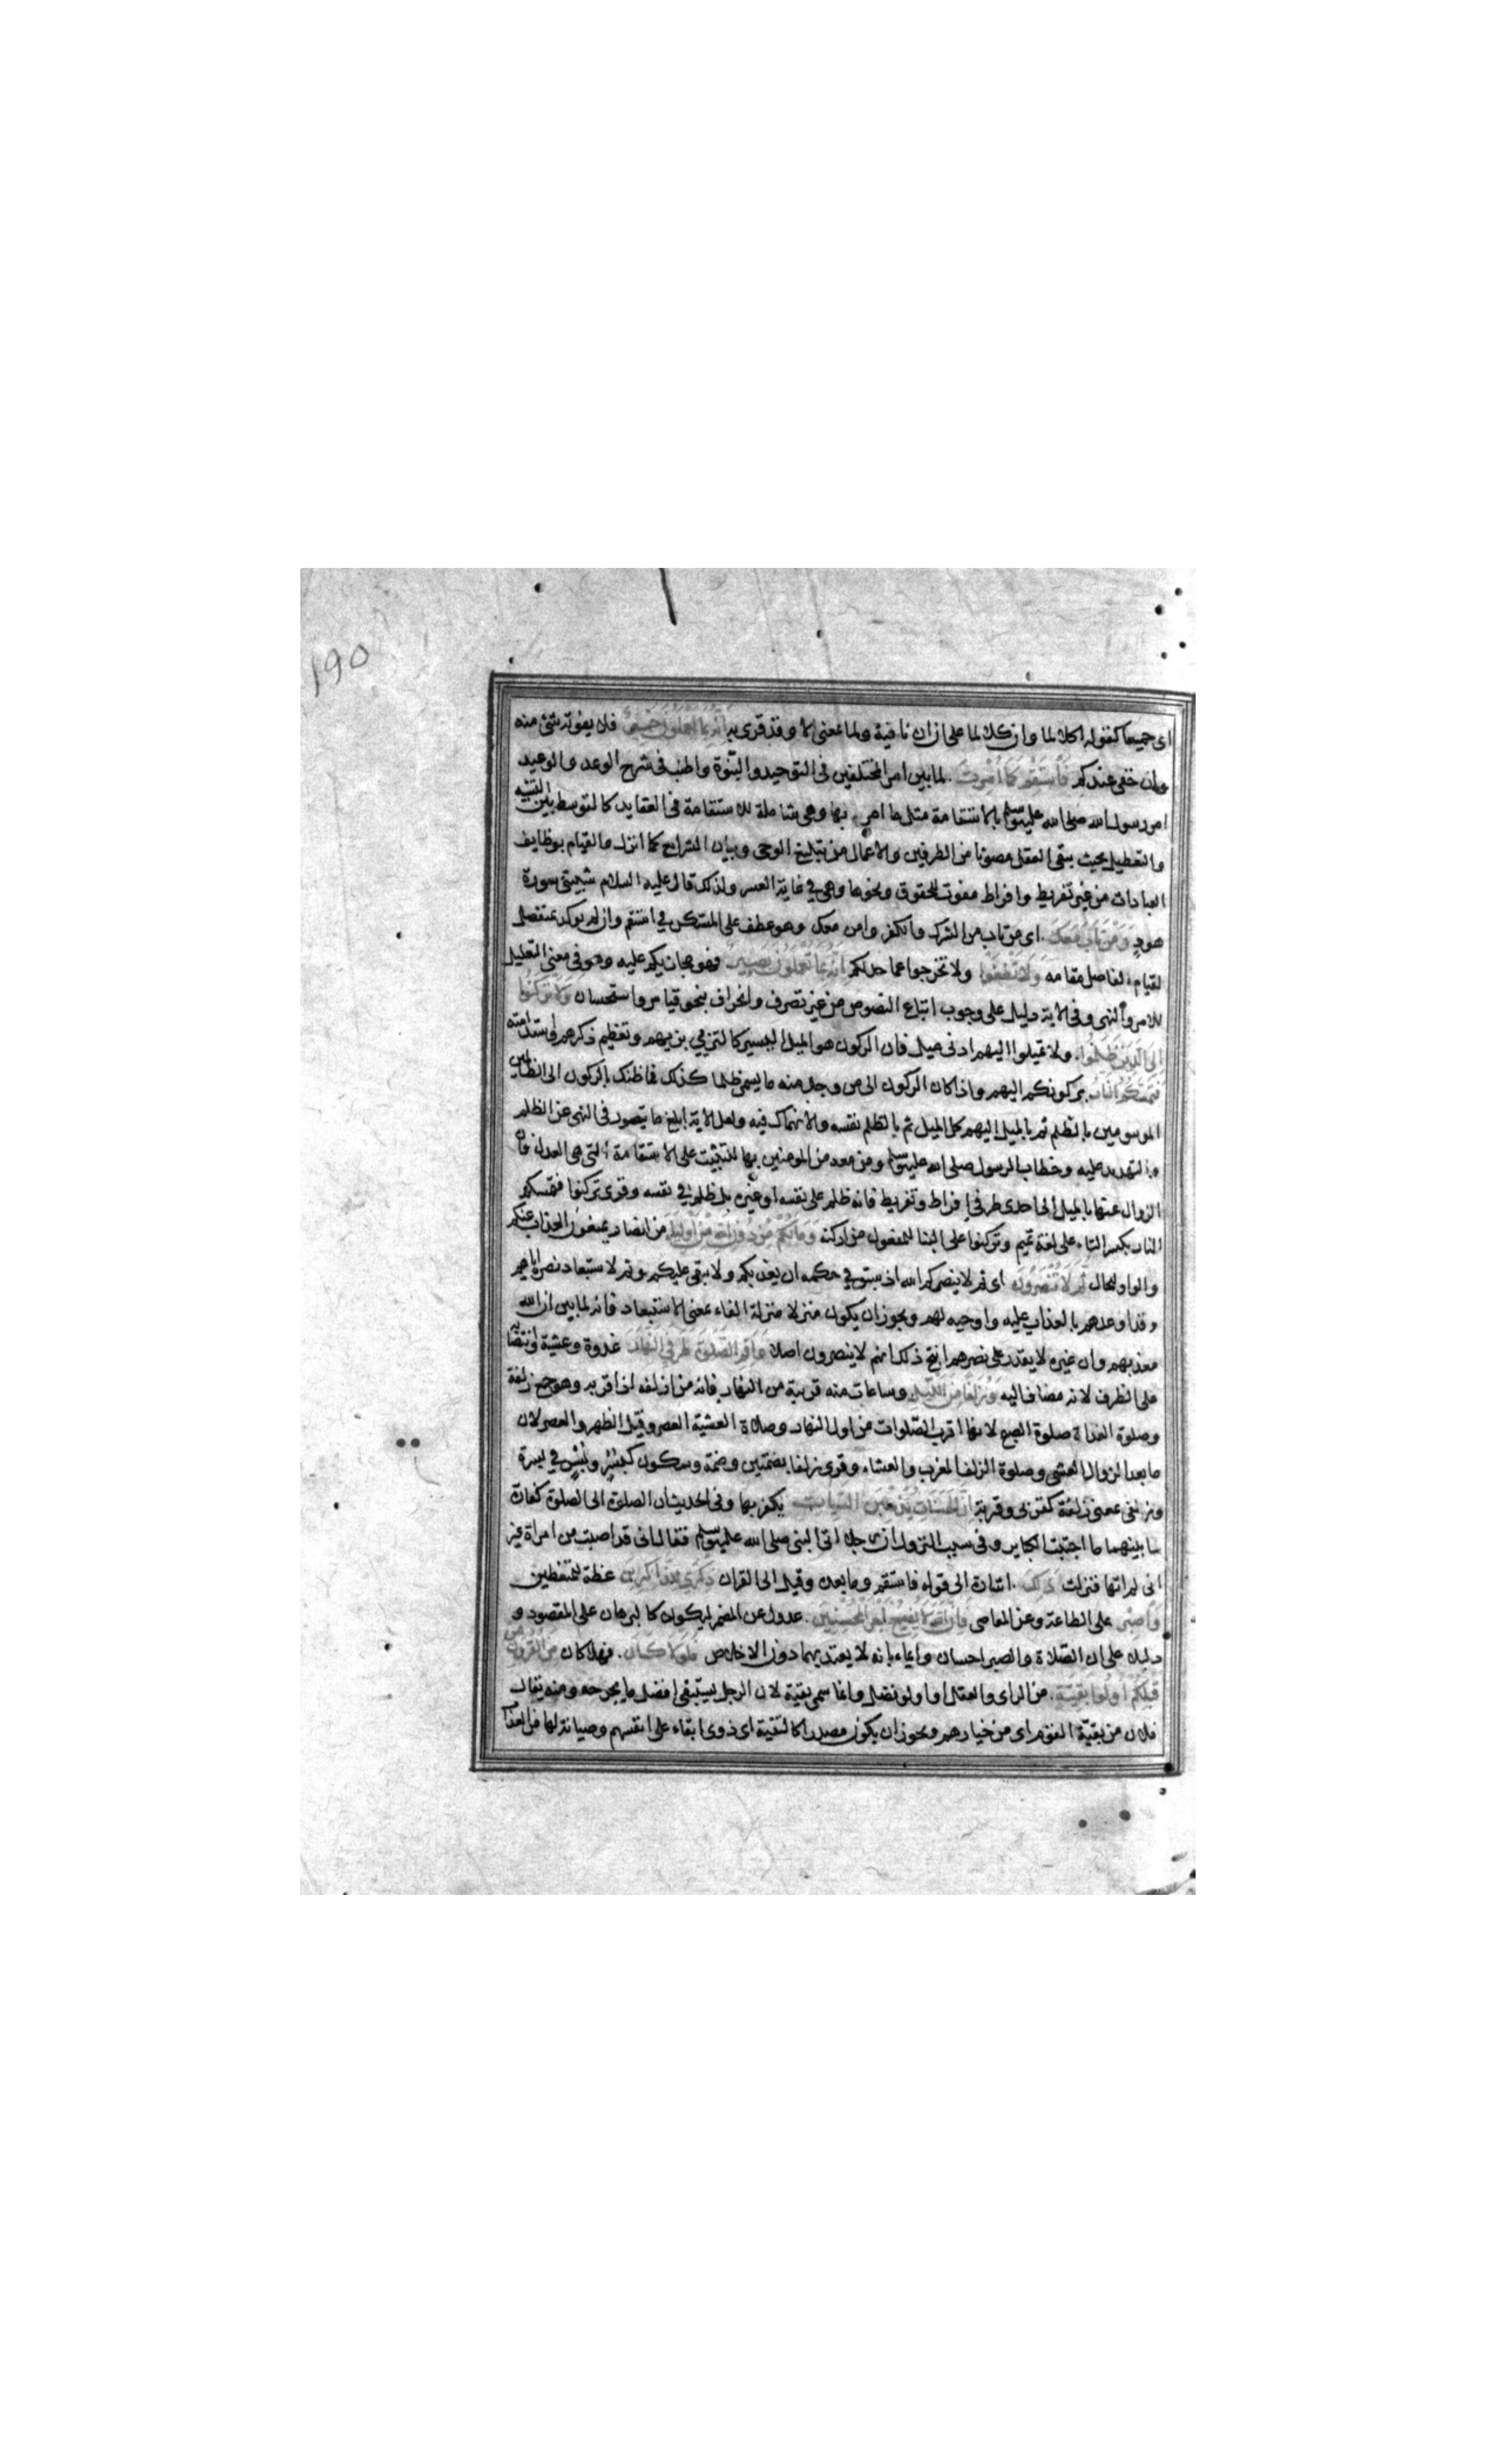 ١٩٥
اى جميعا كقوله اكلا لما وان كلا لما على ان ان نافية ولما بمعنى الا وقد قرئ به إنه بما يعملون خبير فلا يفوته شئ منه
وان خفى عندكم فاستقم كما أمرت لما بين امر المختلفين فى التوحيد والنبوة واطنب فى شرح الوعد والوعيد
امر رسول الله صلى الله عليه وسلم بالاستقامة مثل ما امر بها وهى شاملة للاستقامة فى العقايد كالتوسط بين التشبيه
والتعطيل بحيث يبقى العقل مصونا من الطرفين والاعمال من تبليغ الوحى وبيان الشرايع كما انزل والقيام بوظايف
العبادات من غير تفريط وافراط مفوت للحقوق ونحوها وهى فى غاية العسر ولذلك قال عليه السلام شيبتنى سورة
هود ومن تاب معك اى من تاب من الشرك والكفر وامن معك وهو عطف على المستكن فى استقم وان لم يوكد بمنفصل
لقيام الفاصل مقامه ولا تطغوا ولا تخرجوا عما حد لكم إنه بما تعملون بصير فهو مجازيكم عليه وهو فى معنى التعليل
للامر والنهى وفى الاية دليل على وجوب اتباع النصوص من غير تصرف وانحراف بنحو قياس واستحسان ولا تركنوا
إلى الذين ظلموا ولا تميلوا اليهم ادنى ميل فان الركون هو الميل اليسير كالتزيى بزيهم وتعظيم ذكرهم واستدامته
فتمسكم النار بركونكم اليهم واذا كان الركون الى من وجد منه ما يسمى ظلما كذلك فما ظنك بالركون الى الظالمين
الموسومين بالظلم ثم بالميل اليهم كل الميل ثم بالظلم نفسه والانهماك فيه ولعل الاية ابلغ ما يتصور فى النهى عن الظلم
والتهديد عليه وخطاب الرسول صلى الله عليه وسلم ومن معه من المومنين بها للتثبيت على الاستقامة التى هى العدل فان
الزوال عنها بالميل الى احدى طرفى افراط وتفريط فانه ظلم على نفسه او غيره بل ظلم فى نفسه وقرى تركنوا فتمسكم
النار بكسر التاء على لغة تميم وتركنوا على البنا للمفعول من اركنه وما لكم من دون الله من أولياء من انصار يمنعون العذاب عنكم
والواو للحال ثم لا تنصرون اى ثم لا ينصركم الله اذ سبق فى حكمه ان يعذبكم ولا يبقى عليكم وثم لاستبعاد نصره اياهم
وقد اوعدهم بالعذاب عليه واوجبه لهم ويجوز ان يكون منزلا منزلة الفاء بمعنى الاستبعاد فانه لما بين ان الله
معذبهم وان غيره لا يقدر على نصرهم انتج ذلك انهم لا ينصرون اصلا وأقم الصلوة طرفي النهار غدوة وعشية وانتصابه
على الظرف لانه مضاف اليه وزلفا من الليل وساعات منه قريبة من النهار فانه من ازلفه اذا قربه وهو جمع زلفة
وصلوة الغداة صلوة الصبح لانها اقرب الصلوات من اول النهار وصلاة العشية العصر وقيل الظهر والعصر لان
ما بعد الزوال العشى وصلوة الزلف المغرب والعشاء وقرى زلفا بضمتين وضمة وسكون كبسر وبسر فى بسرة
وزلفى بمعنى زلفة كقربى وقربة إن الحسنات يذهبن السيئات يكفر بها وفى الحديث ان الصلوة الى الصلوة كفارة
ما بينهما ما اجتنبت الكباير وفى سبب النزول ان رجلا اتى النبى صلى الله عليه وسلم فقال انى قد اصبت من امراة غير
انى لم اتها فنزلت ذلك اشارة الى قوله فاستقم وما بعده وقيل الى القران ذكرى للذاكرين عظة للمتعظين
واصبر على الطاعة وعن المعاصى فإن الله لا يضيع أجر المحسنين عدول عن المضمر ليكون كالبرهان على المقصود و
دليلا على ان الصلاة والصبر احسان وايماء بانه لا يعتد بهما دون الاخلاص فلولا كان فهلا كان من القرون من
قبلكم أولوا بقية من الراى والعقل او اولو فضل وانما سمى بقية لان الرجل يستبقى افضل ما يخرجه ومنه يقال
فلان من بقية القوم اى من خيارهم ويجوز ان يكون مصدرا كالتقية اى ذوى ابقاء على انفسهم وصيانة لها من العذاب